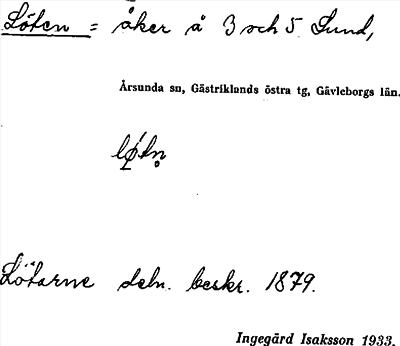 Löten = åker å 3 och 5 Sund,
Årsunda sn, Gästriklands östra tg, Gävleborgs län.
Lötarne deln. beskr. 1879.
Ingegärd Isaksson 1933.